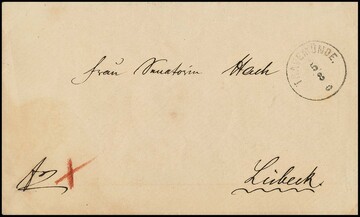 TRAVEMÜNDE.
5/8
Frau Senatorin Hach
Lübeck.